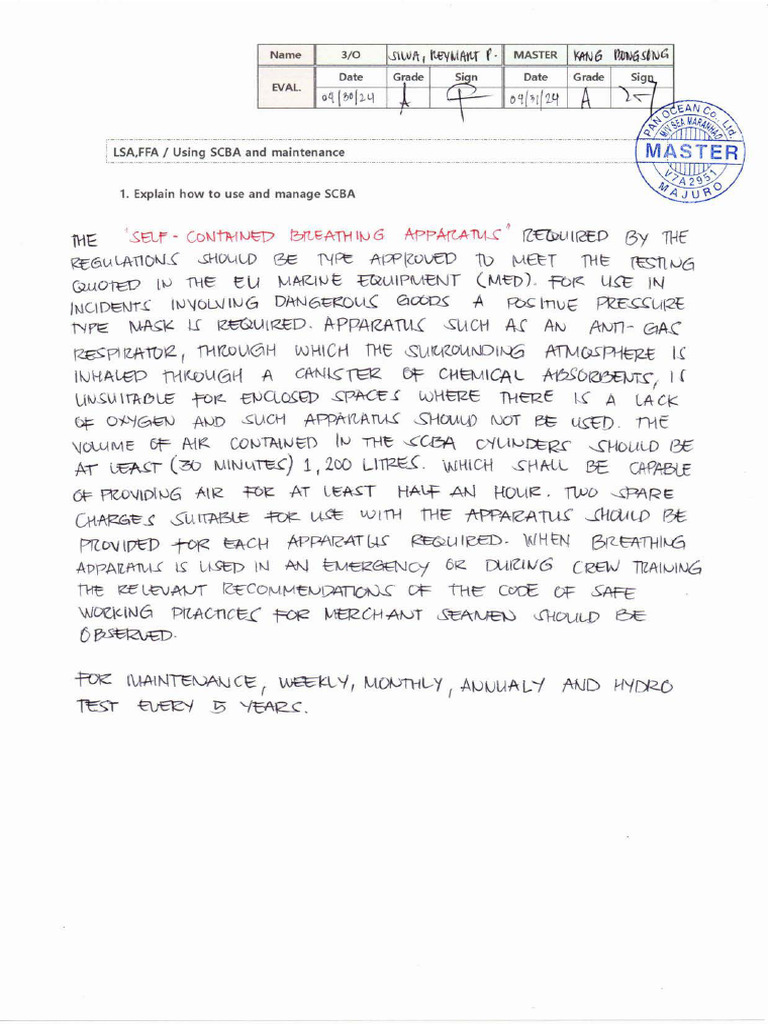 Name 3/O SILVA, REYMART P. MASTER KANG DONGSONG
EVAL. Date Grade Sign Date Grade Sign
09/30/24 A 09/31/24 A
PAN OCEAN Co., Ltd.
M/V SEA MARANHAO
MASTER
V7A2951
MAJURO
LSA,FFA / Using SCBA and maintenance
1. Explain how to use and manage SCBA
THE "SELF-CONTAINED BREATHING APPARATUS" REQUIRED BY THE
REGULATIONS SHOULD BE TYPE APPROVED TO MEET THE TESTING
QUOTED IN THE EU MARINE EQUIPMENT (MED). FOR USE IN
INCIDENTS INVOLVING DANGEROUS GOODS A POSITIVE PRESSURE
TYPE MASK IS REQUIRED. APPARATUS SUCH AS AN ANTI-GAS
RESPIRATOR, THROUGH WHICH THE SURROUNDING ATMOSPHERE IS
INHALED THROUGH A CANISTER OF CHEMICAL ABSORBENTS, IS
UNSUITABLE FOR ENCLOSED SPACES WHERE THERE IS A LACK
OF OXYGEN AND SUCH APPARATUS SHOULD NOT BE USED. THE
VOLUME OF AIR CONTAINED IN THE SCBA CYLINDERS SHOULD BE
AT LEAST (30 MINUTES) 1,200 LITRES. WHICH SHALL BE CAPABLE
OF PROVIDING AIR FOR AT LEAST HALF AN HOUR. TWO SPARE
CHARGES SUITABLE FOR USE WITH THE APPARATUS SHOULD BE
PROVIDED FOR EACH APPARATUS REQUIRED. WHEN BREATHING
APPARATUS IS USED IN AN EMERGENCY OR DURING CREW TRAINING
THE RELEVANT RECOMMENDATIONS OF THE CODE OF SAFE
WORKING PRACTICES FOR MERCHANT SEAMEN SHOULD BE
OBSERVED.
FOR MAINTENANCE, WEEKLY, MONTHLY, ANNUALY AND HYDRO
TEST EVERY 5 YEARS.